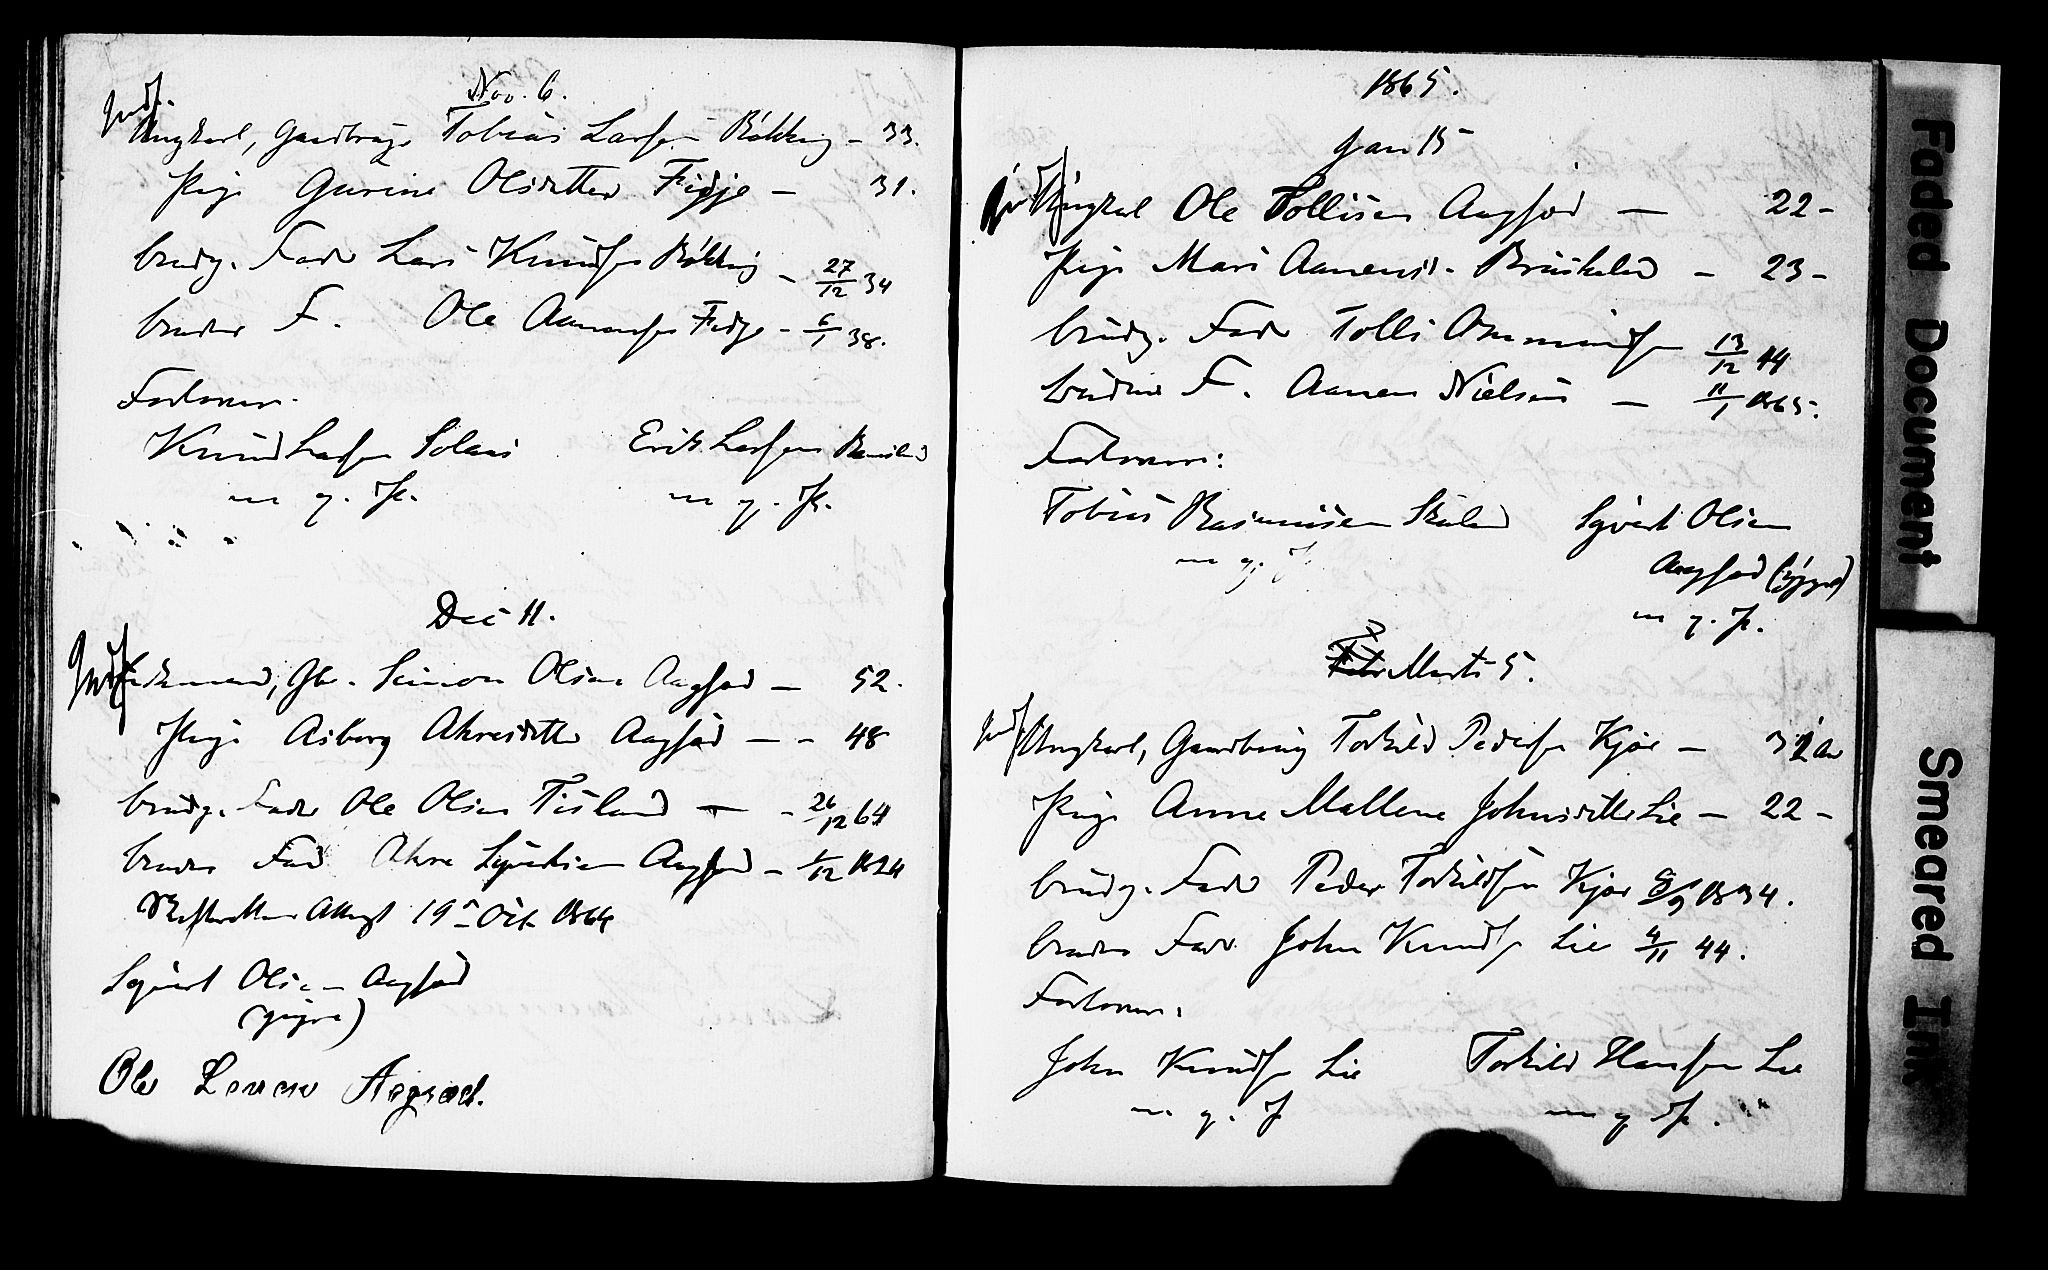 Nov. 6.
Indf.
Ungkarl, Gaardbrug. Tobias Larsen Røkking – 33.
Pige Gurine Olsdatter Fidje – 31.
brudg. Fader Lars Knudsen Røkking – 27/12 34
brudens F. Ole Aanensen Fidje – 6/1 38.
Forlovere.
Knud Larsen Solaas Erik Larsen
m. g. P. m. g. P.
Dec 11.
Indf
Enkemand, Gbr. Simon Olsen Aagsød – 52.
Pige Asborg Akresdatter Aagsød – – 48
brudg. Fader Ole Olsen Tisland – – 26/12 64
brudens Fad Akre Syvertsen Aagsød – /12 1824
Skifterettens Attest 19de Oct 1864
Syvert Olsen Aagsød
yngre)
Ole Larsen Aagsød.
1865.
Jan 15
Indf
Ungkarl Ole Tollisen Aagsød – 22 –
Pige Mari Aanensd. Bruskeland – 23 –
brudg. Fader Tolli Ommundsen 13/12 44
brudens F. Aanen Nielsen – 11/1 1865.
Forlovere:
Tobias Rasmusen Skuland Syvert Olsen
m. g. P. Aagsød (yngre)
m. g. P.
Febr Marts 5.
Indf
Ungkarl, Gaardbrug Torkild Pedersen Kjør – 31 Aar
Pige Anne Mallene Johnsdatter Lie – 22 –
brudg. Fader Peder Torkildsen Kjør /9 1834.
brudens Fader John Knuds. Lie 4/11 44.
Forlovere.
John Knudsen Lie Torkild Hansen Lie
m. g. P m. g P.
Faded Document
Smeared Ink